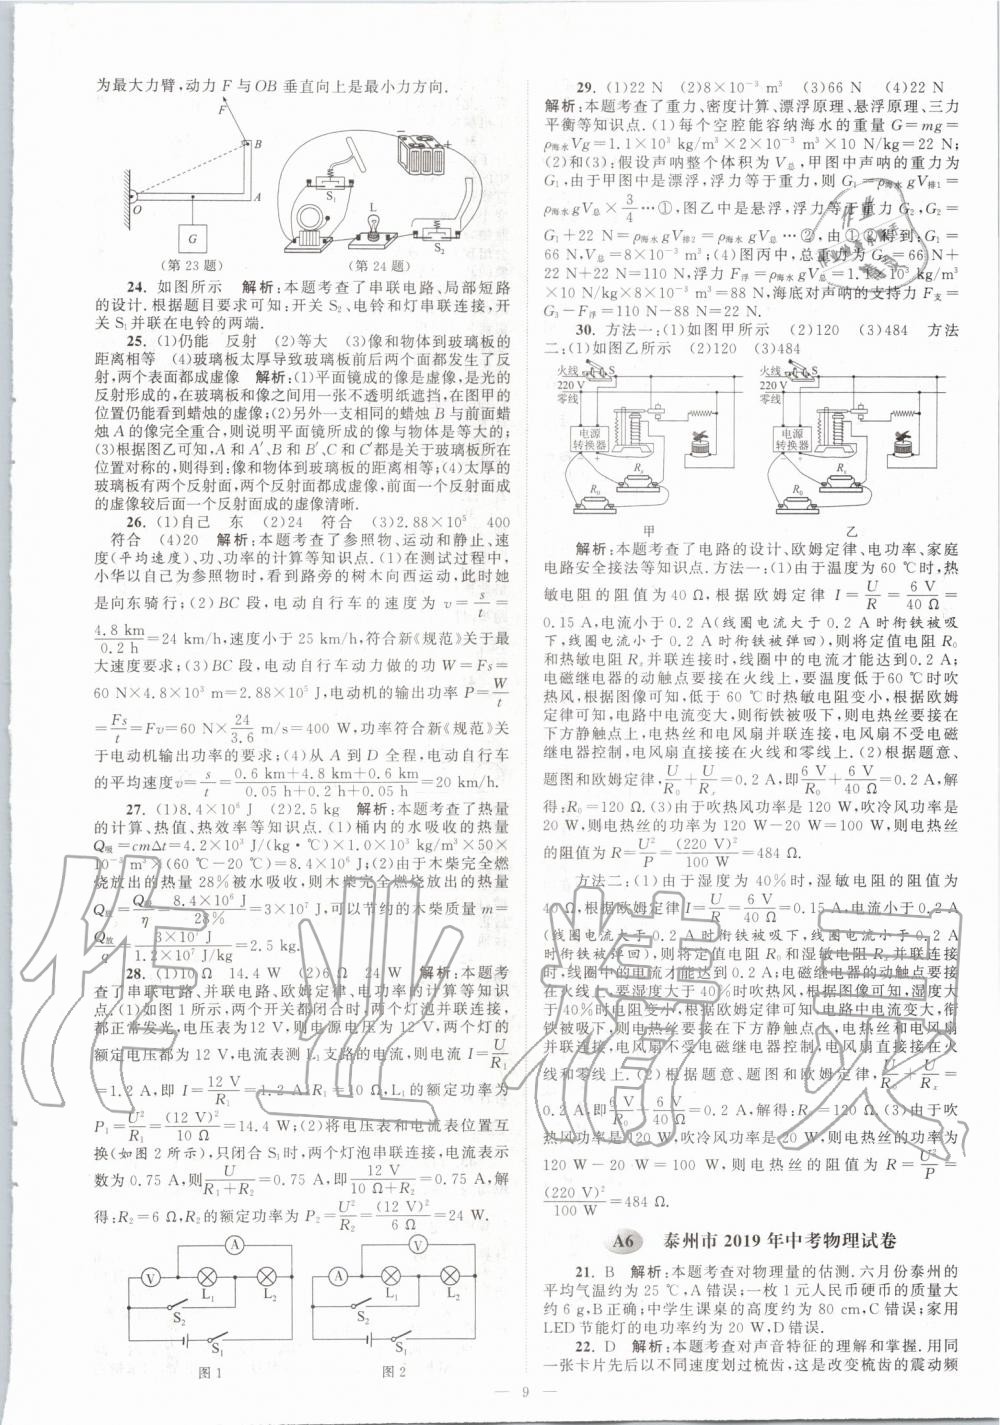 为最大力臂,动力 F 与 OB 垂直向上是最小力方向.
F
B
O
A
G
(第 23 题)
S₁
L
S₂
(第 24 题)
24. 如图所示 解析:本题考查了串联电路、局部短路
的设计.根据题目要求可知:开关 S₂、电铃和灯串联连接,开
关 S₁并联在电铃的两端.
25. (1)仍能 反射 (2)等大 (3)像和物体到玻璃板的
距离相等 (4)玻璃板太厚导致玻璃板前后两个面都发生了反
射,两个表面都成虚像 解析:(1)平面镜成的像是虚像,是光的
反射形成的,在玻璃板和像之间用一张不透明纸遮挡,在图甲的
位置仍能看到蜡烛的虚像;(2)另外一支相同的蜡烛 B 与前面蜡
烛 A 的像完全重合,则说明平面镜所成的像与物体是等大的;
(3)根据图乙可知,A和 A′、B和 B′、C和 C′都是关于玻璃所在
位置对称的,则得到:像和物体到玻璃板的距离相等;(4)太厚的
玻璃板有两个反射面,两个反射面都成虚像,前面一个反射面成
的虚像较后面一个反射面成的虚像清晰.
26. (1)自己 东 (2)24 符合 (3)2.88×10⁵ 400
符合 (4)20 解析:本题考查了参照物、运动和静止、速
度(平均速度)、功、功率的计算等知识点.(1)在测试过程中,
小华以自己为参照物时,看到路旁的树木向西运动,此时她
是向东骑行;(2)BC 段,电动自行车的速度为 v=s/t=
4.8 km/0.2 h=24 km/h,速度小于 25 km/h,符合新《规范》关于最
大速度要求;(3)BC 段,电动自行车动力做的功 W=Fs=
60 N×4.8×10³ m=2.88×10⁵ J,电动机的输出功率 P=W/t
=Fs/t=Fv=60 N×24/3.6 m/s=400 W,功率符合新《规范》关
于电动机输出功率的要求;(4)从 A 到 D 全程,电动自行车
的平均速度v=s/t=(0.6 km+4.8 km+0.6 km)/(0.05 h+0.2 h+0.05 h)=20 km/h.
27. (1)8.4×10⁶ J (2)2.5 kg 解析:本题考查了热量
的计算、热值、热效率等知识点.(1)桶内的水吸收的热量
Q吸=cmΔt=4.2×10³ J/(kg·℃)×1.0×10³ kg/m³×50×
10⁻³ m³×(60 ℃-20 ℃)=8.4×10⁶ J;(2)由于木柴完全燃
烧放出的热量 28%被水吸收,则木柴完全燃烧放出的热量
Q放=Q吸/η=8.4×10⁶ J/28%=3×10⁷ J,可以节约的木柴质量 m=
Q放/q=3×10⁷ J/1.2×10⁷ J/kg=2.5 kg.
28. (1)10 Ω 14.4 W (2)6 Ω 24 W 解析:本题考
查了串联电路、并联电路、欧姆定律、电功率的计算等知识
点.(1)如图 1 所示,两个开关都闭合时,两个灯泡并联连接,
都正常发光,电压表为12 V,则电源电压为 12 V,两个灯的
额定电压都为 12 V,电流表测 L₁支路的电流,则电流 I=U/R₁
=1.2 A,即 I=12 V/R₁=1.2 A,R₁=10 Ω,L₁的额定功率为
P₁=U²/R₁=(12 V)²/10 Ω=14.4 W;(2)将电压表和电流表位置互
换(如图 2 所示),只闭合 S₁时,两个灯泡串联连接,电流表示
数为 0.75 A,则U/(R₁+R₂)=0.75 A,即12 V/(10 Ω+R₂)=0.75 A,解
得:R₂=6 Ω,R₂的额定功率为 P₂=U²/R₂=(12 V)²/6 Ω=24 W.
A
V
L₁
L₂
S₂
S₁
图 1
V
A
L₁
L₂
S₂
S₁
图 2
29. (1)22 N (2)8×10⁻³ m³ (3)66 N (4)22 N
解析:本题考查了重力、密度计算、漂浮原理、悬浮原理、三力
平衡等知识点.(1)每个空腔能容纳海水的重量 G=mg=
ρ海水Vg=1.1×10³ kg/m³×2×10⁻³ m³×10 N/kg=22 N;
(2)和(3):假设声呐整个体积为 V总,甲图中声呐的重力为
G₁,由于甲图中是漂浮,浮力等于重力,则 G₁=ρ海水gV排1=
ρ海水gV总×3/4…①,图乙中是悬浮,浮力等于重力 G₂,G₂=
G₁+22 N=ρ海水gV排2=ρ海水gV总…②,由①②得到:G₁=
66 N,V总=8×10⁻³ m³;(4)图丙中,总重力为 G₃=66 N+
22 N+22 N=110 N,浮力 F浮=ρ海水gV总=1.1×10³ kg/m³
×10 N/kg×8×10⁻³ m³=88 N,海底对声呐的支持力 F支=
G₃-F浮=110 N-88 N=22 N.
30. 方法一:(1)如图甲所示 (2)120 (3)484 方法
二:(1)如图乙所示 (2)120 (3)484
火线
220 V
零线
S
电源
转换器
R₀
甲
火线
220 V
零线
S
电源
转换器
R₀
乙
解析:本题考查了电路的设计、欧姆定律、电功率、家庭
电路安全接法等知识点.方法一:(1)由于温度为 60 ℃时,热
敏电阻的阻值为 40 Ω,根据欧姆定律 I=U/R=6 V/40 Ω=
0.15 A,电流小于 0.2 A(线圈电流大于 0.2 A 时衔铁被吸
下,线圈电流小于 0.2 A 时衔铁被弹回),则将定值电阻 R₀
和热敏电阻 Rₓ并联连接时,线圈中的电流才能达到0.2 A;
电磁继电器的动触点要接在火线上,要温度低于60 ℃时吹
热风,根据图像可知,低于 60 ℃时热敏电阻变小,根据欧姆
定律可知,电路中电流变大,则衔铁被吸下,则电热丝要接在
下方静触点上,电热丝和电风扇并联连接,电风扇不受电磁
继电器控制,电风扇直接接在火线和零线上.(2)根据题意、
题图和欧姆定律,U/R₀+U/Rₓ=0.2 A,即6 V/R₀+6 V/40 Ω=0.2 A,解
得:R₀=120 Ω.(3)由于吹热风功率是 120 W,吹冷风功率是
20 W,则电热丝的功率为 120 W-20 W=100 W,则电热丝
的阻值为 R=U²/P=(220 V)²/100 W=484 Ω.
方法二:(1)由于湿度为 40%时,湿敏电阻的阻值为
40 Ω,根据欧姆定律 I=U/R=6 V/40 Ω=0.15 A,电流小于 0.2 A
(线圈电流大于 0.2 A 时衔铁被吸下,线圈电流小于 0.2 A
时衔铁被弹回),则将定值电阻 R₀和湿敏电阻 Rₓ并联连接
时,线圈中的电流才能达到0.2 A;电磁继电器的动触点要接
在火线上,要湿度大于40%时吹热风,根据图像可知,大
于40%时电阻变小,根据欧姆定律可知,电路中电流变大,衔
铁被吸下,则电热丝要接在下方静触点上,电热丝和电风扇
并联连接,电风扇不受电磁继电器控制,电风扇直接接在火
线和零线上.(2)根据题意、题图和欧姆定律,U/R₀+U/Rₓ=
0.2 A,即6 V/R₀+6 V/40 Ω=0.2 A,解得:R₀=120 Ω.(3)由于吹
热风功率是 120 W,吹冷风功率是20 W,则电热丝的功率为
120 W-20 W=100 W,则电热丝的阻值为 R=U²/P=
(220 V)²/100 W=484 Ω.
A6 泰州市 2019 年中考物理试卷
21. B 解析:本题考查对物理量的估测.六月份泰州的
平均气温约为 25 ℃,A 错误;一枚 1 元人民币硬币的质量大
约 6 g,B 正确;中学生课桌的高度约为 80 cm,C 错误;家用
LED 节能灯的电功率约为 20 W,D 错误.
22. D 解析:本题考查对声音特征的理解和掌握.用同
一张卡片先后以不同速度划过梳齿,这是改变梳齿的震动频
— 9 —
作业精灵